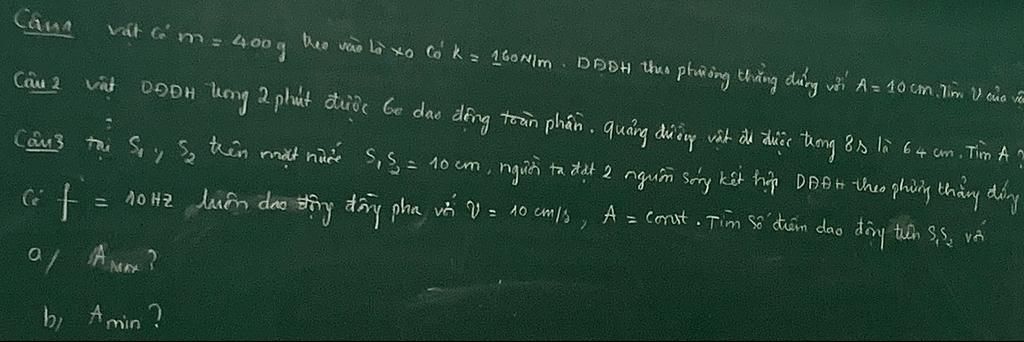 Câu 1 vật có m = 400g treo vào lò xo có k = 160N/m. DĐĐH theo phương thẳng đứng với A = 10 cm. Tìm v của
Câu 2 vật DĐĐH trong 2 phút được 60 dao động toàn phần. quãng đường vật đi được trong 8s là 64 cm. Tìm A ?
Câu 3 tại S₁, S₂ trên mặt nước S₁S₂ = 10 cm, người ta đặt 2 nguồn sóng kết hợp DĐĐH theo phương thẳng đứng
Có f = 10 HZ luôn dao động đồng pha với v = 10 cm/s, A = const. Tìm số điểm dao động trên S₁S₂ với
a/ A_Max ?
b, A_min ?